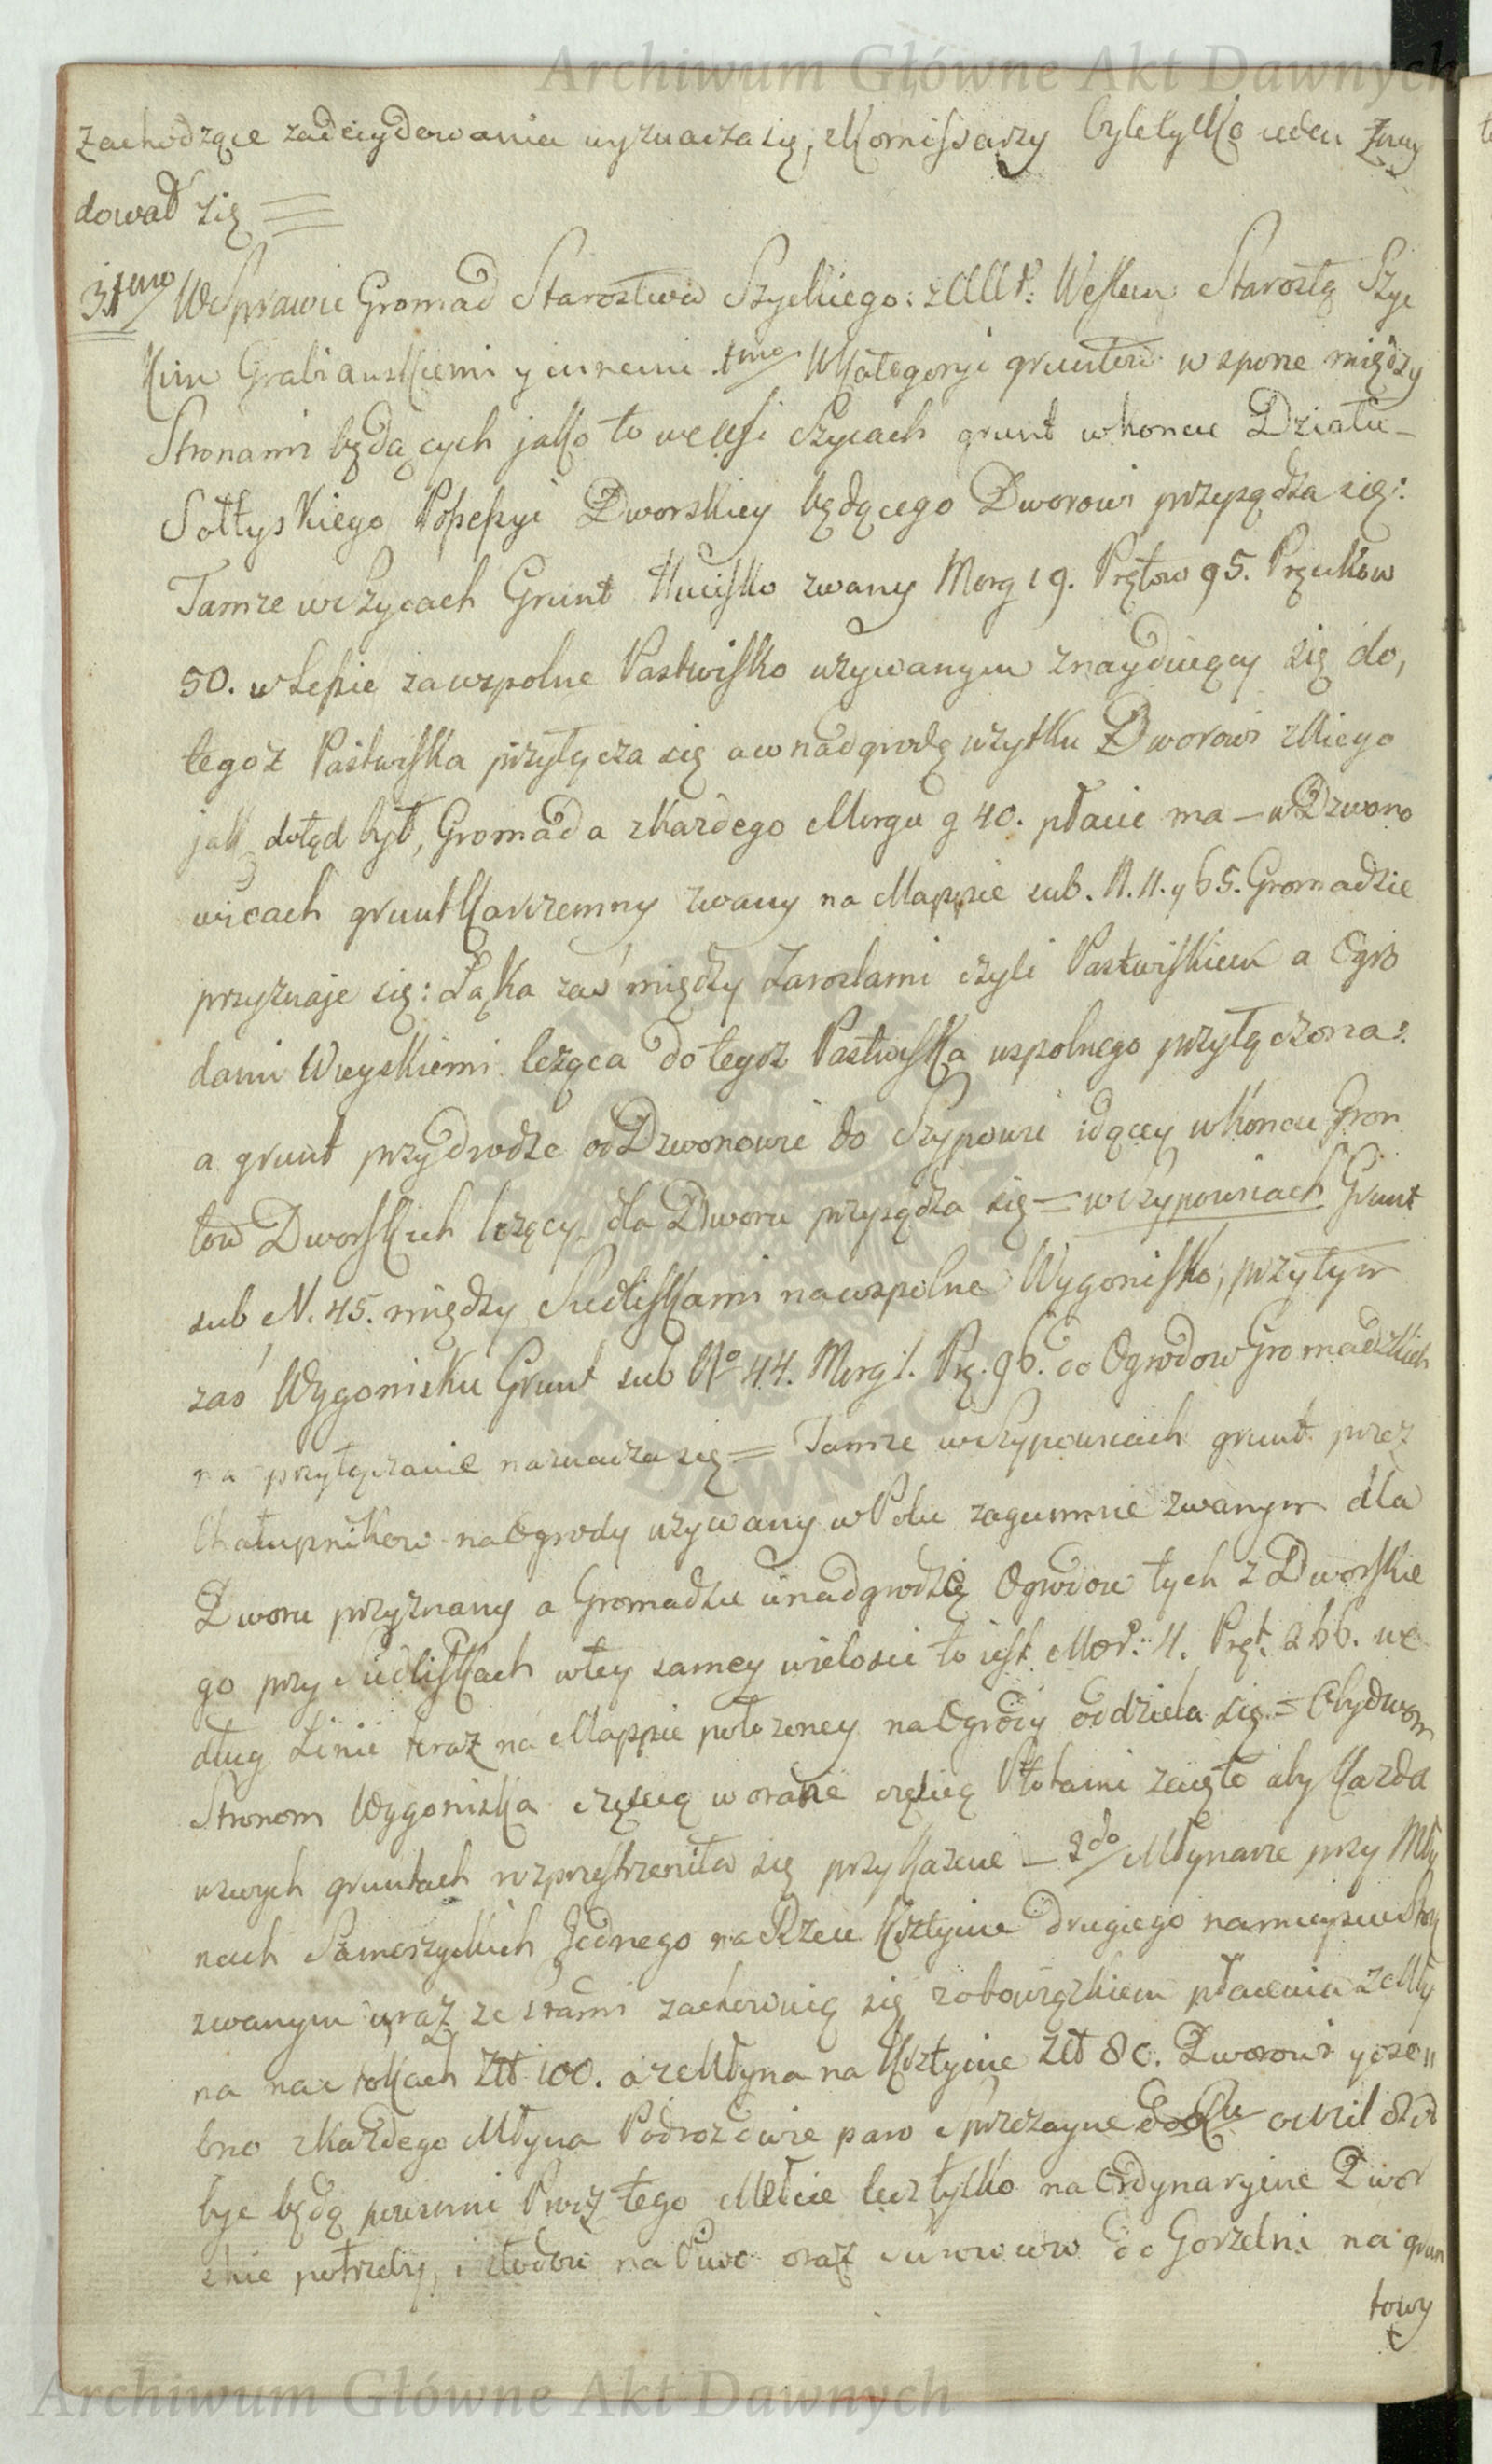 Archiwum Główne Akt Dawnych
zachodzące zadecydowania wyznacza się, Komissarzy byle tylko ieden znay
dował się
31mo W Sprawie Gromad Starostwa Szyckiego: z UUr: Weslem Starostą Szyc
kim Grabianskiemi y innemi 1mo W Kategoryi gruntow w sporze między
Stronami będących jako to we wsi Szycach grunt w koncu Działu
Sołtyskiego Possessyi Dworskiey będącego Dworowi przysądza się:
Tamze w Szycach Grunt Hucisko zwany Morg 19. Prętow 95. Pręcikow
50. w Lesie za wspolne Pastwisko uzywanym znayduiący się do,
tegoz Pastwiska przyłącza się a w nadgrodę uzytku Dworowi z niego
jak dotąd był, Gromada z kazdego Morgu g 40. płacic ma — w Dzwono
wicach grunt Karczemny zwany na Mappie sub. N. 11. y 65. Gromadzie
przyznaje się: Łąka zaś między Zaroslami czyli Pastwiskiem a Ogro
dami Wieyskiemi leząca do tegoz Pastwiska wspolnego przyłączona:
a grunt przy drodze od Dzwonowic do Szypowic idącey w koncu Grun
tow Dworskich lezący, dla Dworu przysądza się = w Szypowicach Grunt
sub N. 45. między Siedliskami na wspolne Wygonisko, przy tym
zaś Wygonisku Grunt sub No 44. Morg 1. Prę. 96. do Ogrodow Gromadzkich
na przyłączenie naznacza się = Tamze w Szypowicach grunt przez
Chałupnikow na Ogrody uzywany w Polu zagumnie zwanym dla
Dworu przyznany a Gromadzie w nadgrodzę Ogrodow tych z Dworskie
go przy Siedliskach w tey samey wielosci to iest Mor: 4. Pręt. 266. we
dług Linii teraz na Mappie połozoney na Ogrody oddziela się = Obydwom
Stronom Wygoniska częscią w oranie częscią Płotami zaięte aby Kazda
w swych gruntach rozprzestrzeniła się przykazuie — 2do Młynarze przy Mły
nach Samoszyckich Jednego na Rzece Krztynie drugiego na mieyscu
zwanym wraz ze słami zachowuią się z obowiązkiem płacenia z Mły
na na Stokach Złt 100. a z Młyna na Krztynie Złt 80. Dworowi y oso
bno z kazdego Młyna Podrozowizne parą sprzęzayne mil
byc będą powinni Procz tego Mełcie lecz tylko na Ordynaryine Dwor
skie potrzeby, i słodow na Piwo oraz surowcow do Gorzelni na grun
towy
Archiwum Główne Akt Dawnych